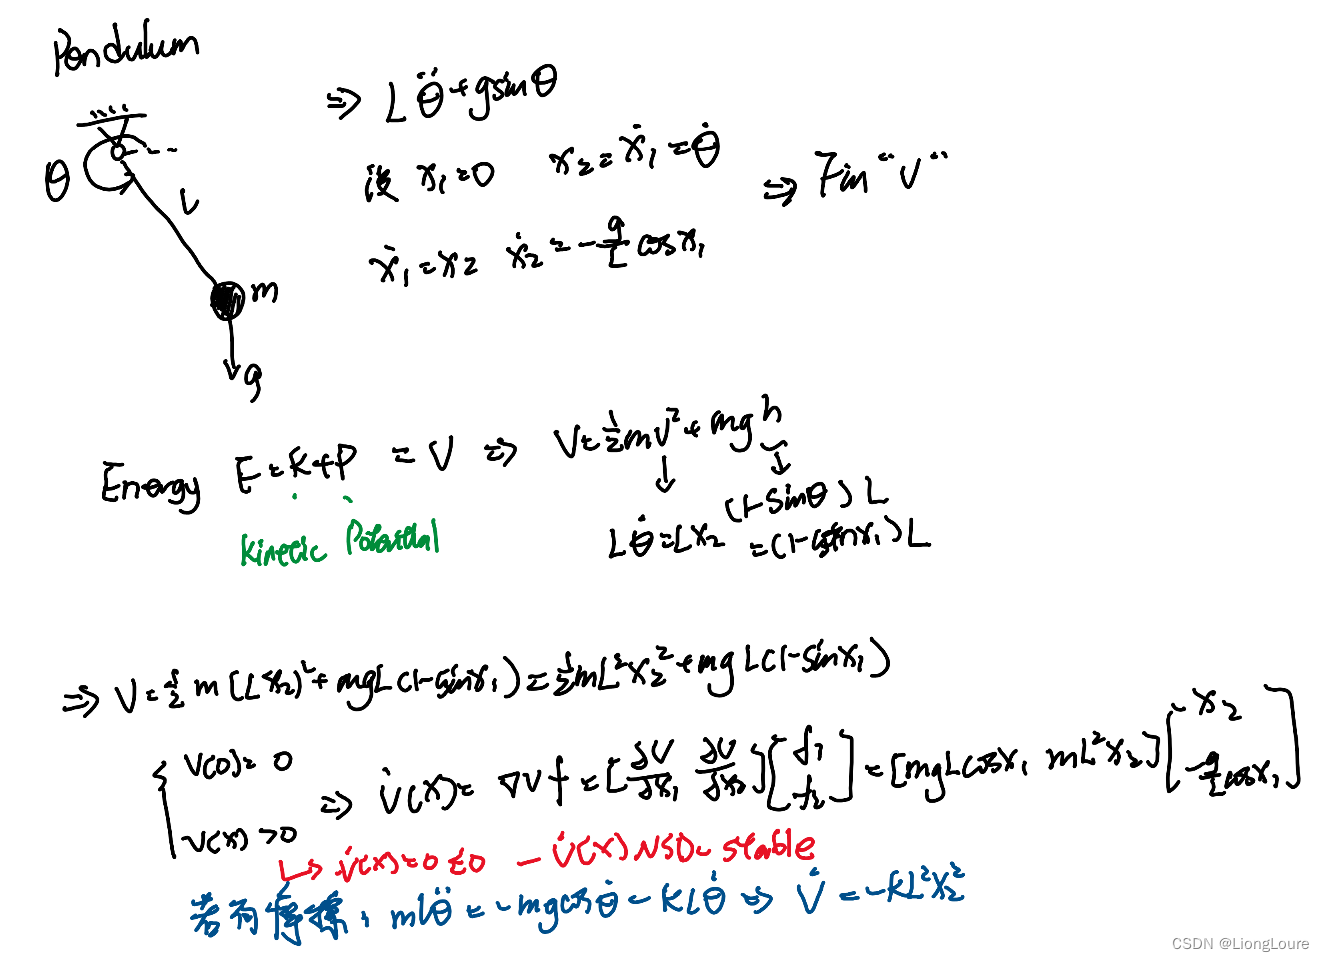 Pendulum
θ
L
m
g
⇒ L θ̈ + g sin θ
设 x₁ = θ  x₂ = ẋ₁ = θ̇
ẋ₁ = x₂  ẋ₂ = -g/L cos x₁
⇒ Fin "V"
Energy  E = K + P = V ⇒ V = ½mv² + mgh
Kinetic  Potential
Lθ̇ = Lx₂
(1 - sin θ) L
= (1 - sin x₁) L
⇒ V = ½ m (L x₂)² + mgL (1 - sin x₁) = ½ mL²x₂² + mgL(1 - sin x₁)
{ V(0) = 0
V(x) > 0
⇒ V̇(x) = ∇V f = [∂V/∂x₁ ∂V/∂x₂] [f₁ f₂] = [mgL cos x₁  mL²x₂] [-x₂  -g/L cos x₁]
↳ V̇(x) = 0 ≤ 0 — V̇(x) NSD - stable
若有摩擦, mLθ̈ = -mg cos θ - KLθ̇ ⇒ V̇ = -KL²x₂²
CSDN @LiongLoure